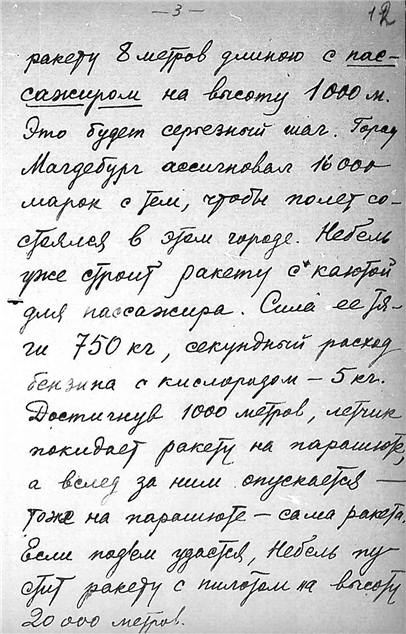 — 3 —
12
ракету 8 метров длиною с пас-
сажиром на высоту 1000 м.
Это будет серьезный шаг. Город
Магдебург ассигновал 16 000
марок с тем, чтобы полет со-
стоялся в этом городе. Небель
уже строит ракету с каютой
для пассажира. Сила ее тя-
ги 750 кг, секундный расход
бензина с кислородом – 5 кг.
Достигнув 1000 метров, летчик
покидает ракету на парашюте,
а вслед за ним опускается —
тоже на парашюте – сама ракета.
Если подъем удастся, Небель пу-
стит ракету с пилотом на высоту
20 000 метров.